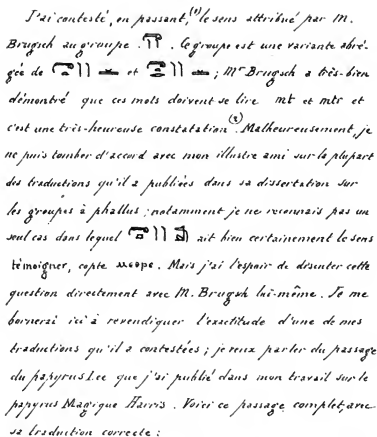 J'ai contesté, en passant,(1) le sens attribué par M.
Brugsch au groupe . Ce groupe est une variante abré-
gée de et ; Mr Brugsch a très-bien
démontré que ces mots doivent se lire mt et mtr et
c'est une très-heureuse constatation(2). Malheureusement, je
ne puis tomber d'accord avec mon illustre ami sur la plupart
des traductions qu'il a publiées dans sa dissertation sur
les groupes à phallus ; notamment je ne reconnais pas un
seul cas dans lequel ait bien certainement le sens
témoigner, copte ⲙⲉⲑⲣⲉ. Mais j'ai l'espoir de discuter cette
question directement avec M. Brugsch lui-même. Je me
bornerai ici à revendiquer l'exactitude d'une de mes
traductions qu'il a contestées ; je veux parler du passage
du papyrus Lee que j'ai publié dans mon travail sur le
papyrus Magique Harris. Voici ce passage complet, avec
sa traduction correcte :